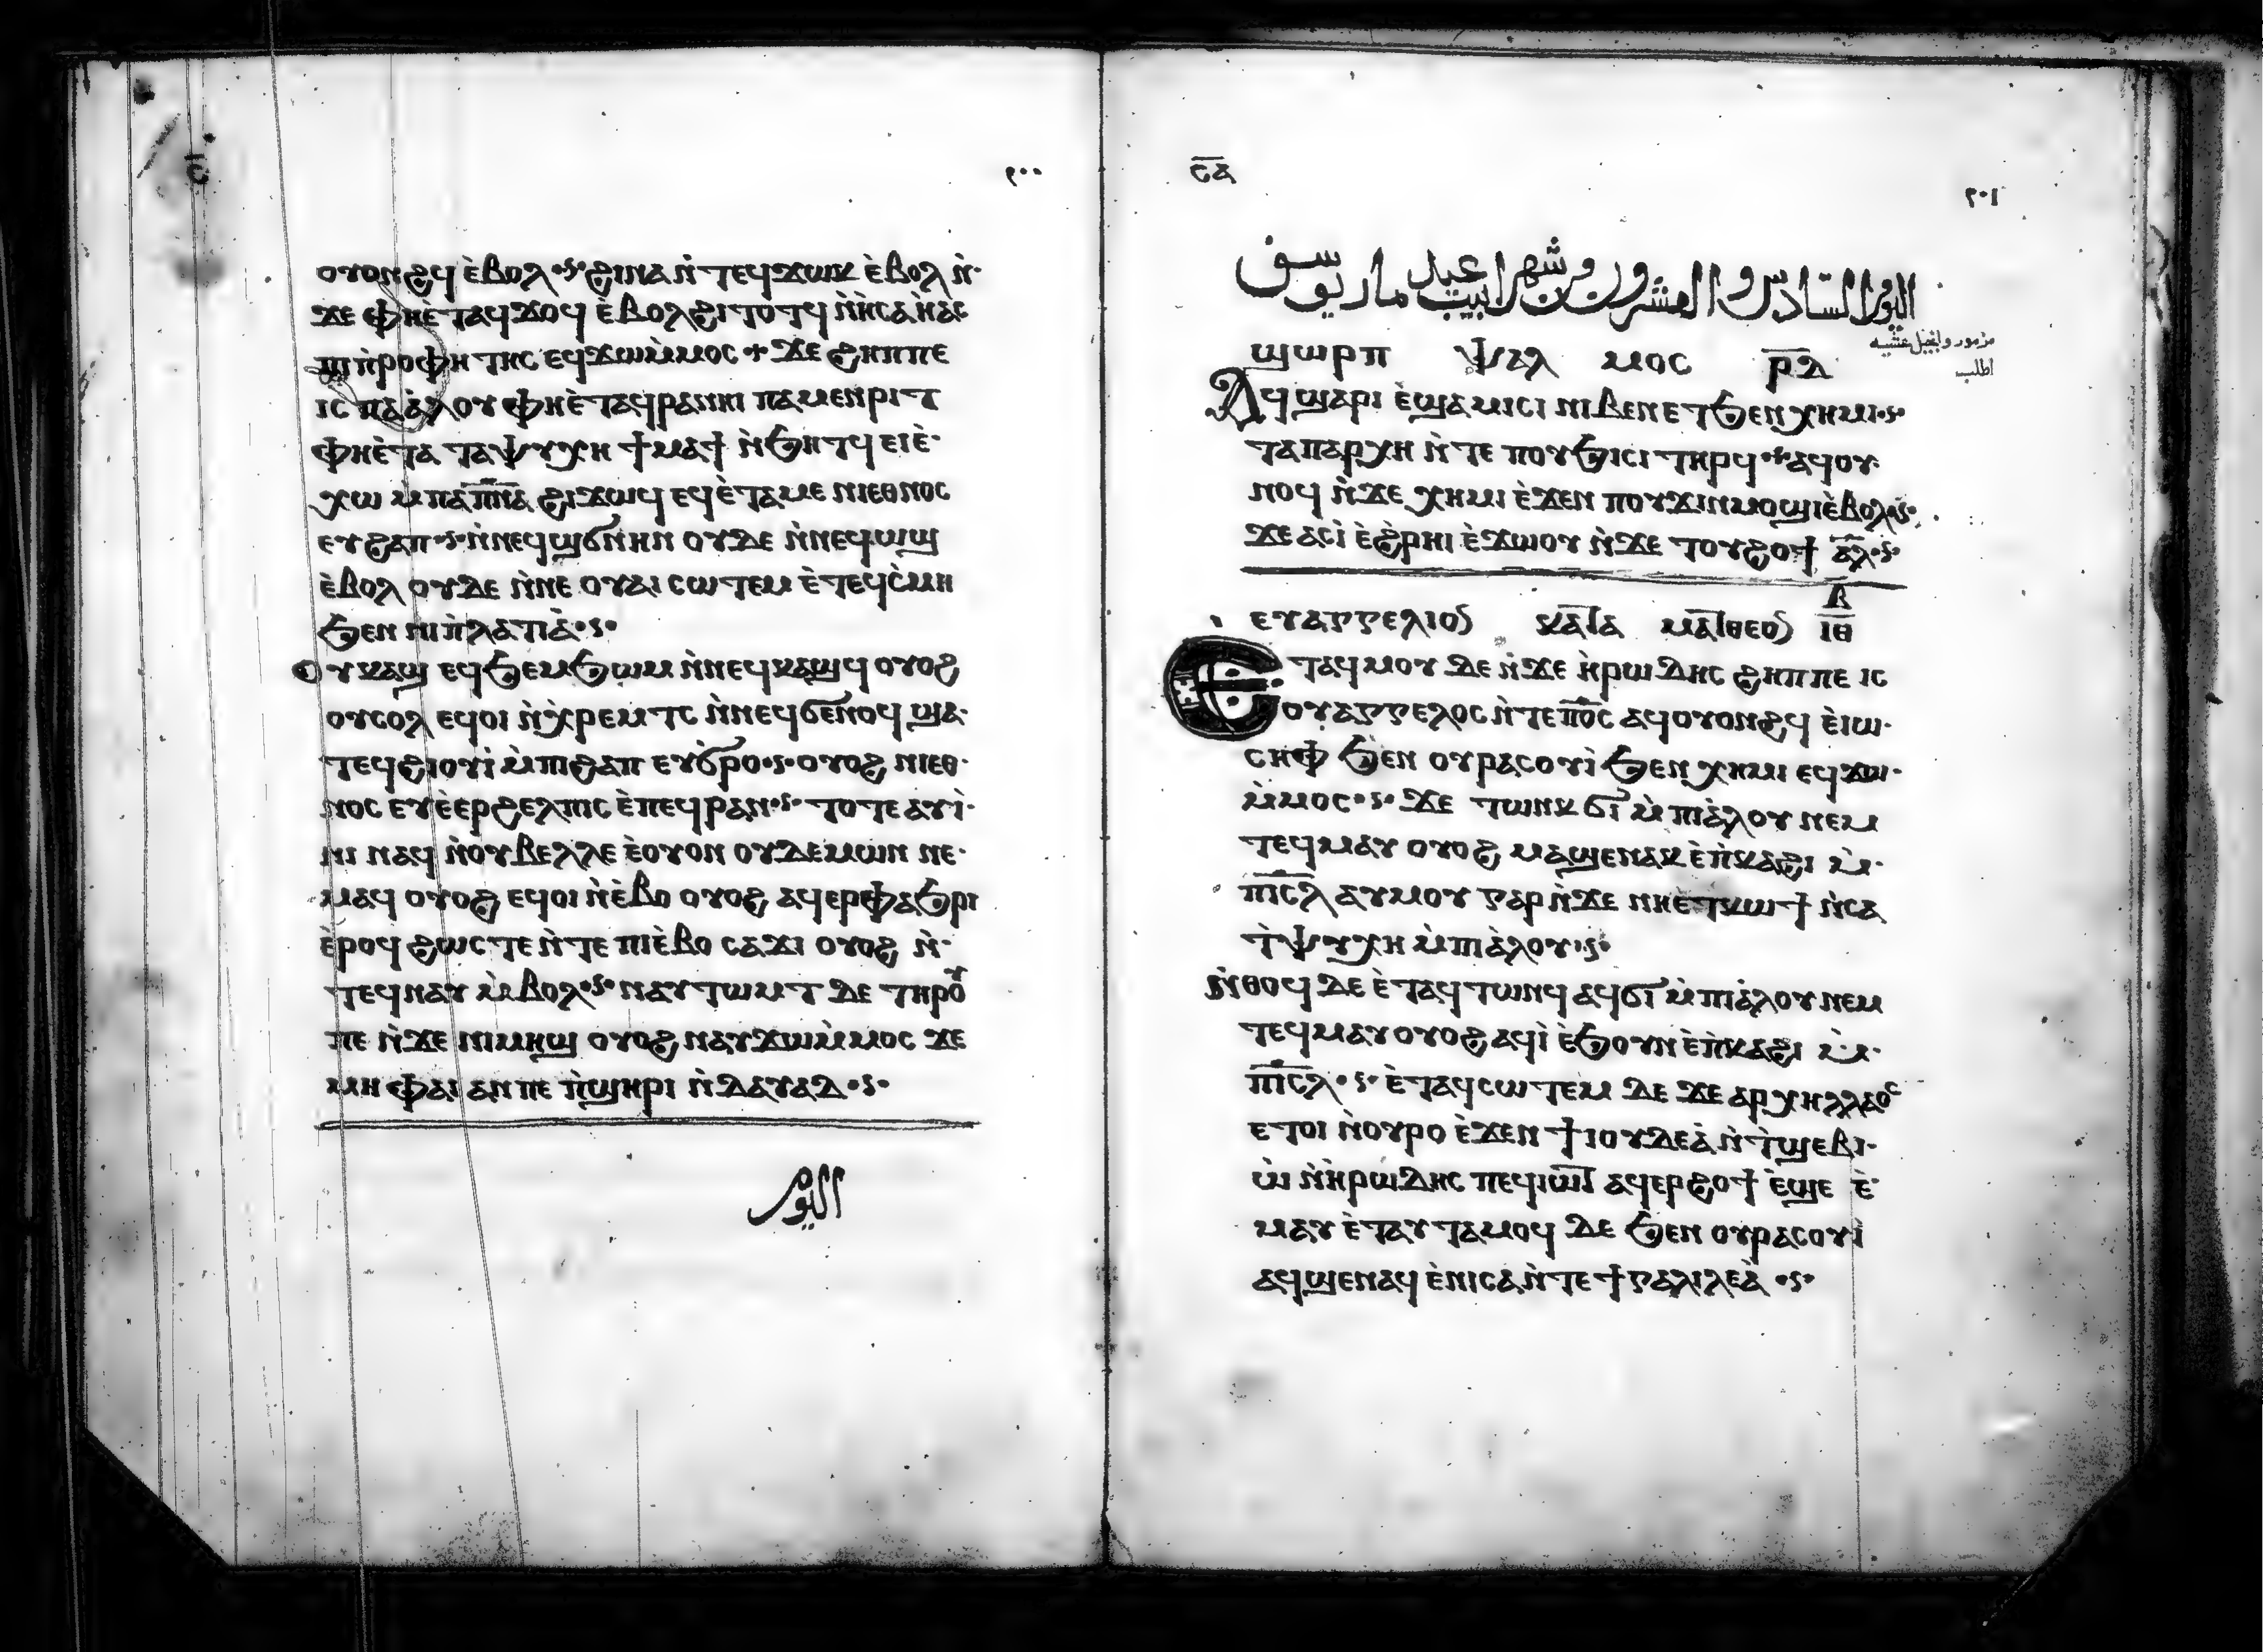 ⲥ̅
٢٠٠
ⲟⲩⲟⲛϩϥ ⲉ̀ⲃⲟⲗ ϩⲓⲛⲁ ⲛ̀ⲧⲉϥϫⲱⲕ ⲉ̀ⲃⲟⲗ ⲛ̀
ϫⲉ ⲫⲏⲉ̀ⲧⲁϥϫⲟϥ ⲉ̀ⲃⲟⲗϩⲓⲧⲟⲧϥ ⲛ̀ⲏ̀ⲥⲁⲏ̀ⲁⲥ
ⲡⲓⲡ̀ⲣⲟⲫⲏⲧⲏⲥ ⲉϥϫⲱⲙ̀ⲙⲟⲥ ϫⲉ ϩⲏⲡⲡⲉ
ⲓⲥ ⲡⲁⲁ̀ⲗⲟⲩ ⲫⲏⲉ̀ⲧⲁϥⲣⲁⲛⲏⲓ ⲡⲁⲙⲉⲛⲣⲓⲧ
ⲫⲏⲉ̀ⲧⲁ ⲧⲁⲯⲩⲭⲏ ϯⲙⲁϯ ⲛ̀ϧⲏⲧϥ ⲉⲓⲉ̀
ⲭⲱ ⲙ̀ⲡⲁⲡ̅ⲛ̅ⲁ̅ ϩⲓϫⲱϥ ⲉϥⲉ̀ⲧⲁⲙⲉ ⲛⲓⲉⲑⲛⲟⲥ
ⲉⲩϩⲁⲡ ⲛ̀ⲛⲉϥϣϭⲛⲏⲛ ⲟⲩⲇⲉ ⲛ̀ⲛⲉϥⲱϣ
ⲉ̀ⲃⲟⲗ ⲟⲩⲇⲉ ⲛ̀ⲛⲉ ⲟⲩⲁⲓ ⲥⲱⲧⲉⲙ ⲉ̀ⲧⲉϥⲥ̀ⲙⲏ
ϧⲉⲛ ⲛⲓⲡ̀ⲗⲁⲧⲓⲁ̀
ⲟⲩⲕⲁϣ ⲉϥϧⲉⲙϧⲱⲙ ⲛ̀ⲛⲉϥⲕⲁϣϥ ⲟⲩⲟϩ
ⲟⲩⲥⲟⲗ ⲉϥⲟⲓ ⲛ̀ⲭ̀ⲣⲉⲙⲧⲥ ⲛ̀ⲛⲉϥϭⲉⲛⲟϥ ϣⲁ
ⲧⲉϥϩⲓⲟⲩⲓ̀ ⲙ̀ⲡⲓϩⲁⲡ ⲉⲩϭ̀ⲣⲟ ⲟⲩⲟϩ ⲛⲓⲉⲑ
ⲛⲟⲥ ⲉⲩⲉ̀ⲉⲣϩⲉⲗⲡⲓⲥ ⲉ̀ⲡⲉϥⲣⲁⲛ ⲧⲟⲧⲉ ⲁⲩⲓ̀
ⲛⲓ ⲛⲁϥ ⲛ̀ⲟⲩⲃⲉⲗⲗⲉ ⲉ̀ⲟⲩⲟⲛ ⲟⲩⲇⲉⲙⲱⲛ ⲛⲉ
ⲙⲁϥ ⲟⲩⲟϩ ⲉϥⲟⲓ ⲛ̀ⲉ̀ⲃⲟ ⲟⲩⲟϩ ⲁϥⲉⲣⲫⲁϧⲣⲓ
ⲉ̀ⲣⲟϥ ϩⲱⲥⲧⲉ ⲛ̀ⲧⲉ ⲡⲓⲉ̀ⲃⲟ ⲥⲁϫⲓ ⲟⲩⲟϩ ⲛ̀
ⲧⲉϥⲛⲁⲩ ⲙ̀ⲃⲟⲗ ⲛⲁⲩⲧⲱⲙⲧ ⲇⲉ ⲧⲏⲣⲟⲩ
ⲡⲉ ⲛ̀ϫⲉ ⲛⲓⲙⲏϣ ⲟⲩⲟϩ ⲛⲁⲩϫⲱⲙ̀ⲙⲟⲥ ϫⲉ
ⲙⲏ ⲫⲁⲓ ⲁⲛ ⲡⲉ ⲡ̀ϣⲏⲣⲓ ⲛ̀ⲇⲁⲩⲁⲇ
اليوم
ⲥ̅ⲁ̅
٢٠١
اليوم السادس والعشرون من شهر ابيب عيد مار يوسف
مزمور وانجيل عشيه
اطلب
ϣⲱⲣⲡ ⲯⲁⲗ ⲙⲟⲥ ⲣ̅ⲇ̅
Ⲁϥϣⲁⲣⲓ ⲉ̀ϣⲁⲙⲓⲥⲓ ⲛⲓⲃⲉⲛ ⲉⲧϧⲉⲛ ⲭⲏⲙⲓ
ⲧⲁⲡⲁⲣⲭⲏ ⲛ̀ⲧⲉ ⲡⲟⲩϧⲓⲥⲓ ⲧⲏⲣϥ ⲁϥⲟⲩ
ⲛⲟϥ ⲛ̀ϫⲉ ⲭⲏⲙⲓ ⲉ̀ϫⲉⲛ ⲡⲟⲩϫⲓⲛⲙⲟϣⲓ ⲉ̀ⲃⲟⲗ
ϫⲉ ⲁⲥⲓ̀ ⲉ̀ϩ̀ⲣⲏⲓ ⲉ̀ϫⲱⲟⲩ ⲛ̀ϫⲉ ⲧⲟⲩϩⲟϯ ⲁ̅ⲗ̅
ⲉⲩⲁⲅⲅⲉⲗⲓⲟⲛ ⲕⲁⲧⲁ ⲙⲁⲧⲑⲉⲟⲛ ⲃ̅ ⲓ̅ⲑ̅
Ⲉⲧⲁϥⲙⲟⲩ ⲇⲉ ⲛ̀ϫⲉ ⲏ̀ⲣⲱⲇⲏⲥ ϩⲏⲡⲡⲉ ⲓⲥ
ⲟⲩⲁⲅⲅⲉⲗⲟⲥ ⲛ̀ⲧⲉ ⲡ̅ⲟ̅ⲥ̅ ⲁϥⲟⲩⲟⲛϩϥ ⲉ̀ⲓⲱ
ⲥⲏⲫ ϧⲉⲛ ⲟⲩⲣⲁⲥⲟⲩⲓ̀ ϧⲉⲛ ⲭⲏⲙⲓ ⲉϥϫⲱ
ⲙ̀ⲙⲟⲥ ϫⲉ ⲧⲱⲛⲕ ϭⲓ ⲙ̀ⲡⲓⲁ̀ⲗⲟⲩ ⲛⲉⲙ
ⲧⲉϥⲙⲁⲩ ⲟⲩⲟϩ ⲙⲁϣⲉⲛⲁⲕ ⲉ̀ⲡ̀ⲕⲁϩⲓ ⲙ̀
ⲡ̅ⲓ̅ⲥ̅ⲗ̅ ⲁⲩⲙⲟⲩ ⲅⲁⲣ ⲛ̀ϫⲉ ⲛⲏⲉ̀ⲧⲕⲱϯ ⲛ̀ⲥⲁ
ⲧ̀ⲯⲩⲭⲏ ⲙ̀ⲡⲓⲁ̀ⲗⲟⲩ
ⲛ̀ⲑⲟϥ ⲇⲉ ⲉ̀ⲧⲁϥⲧⲱⲛϥ ⲁϥϭⲓ ⲙ̀ⲡⲓⲁ̀ⲗⲟⲩ ⲛⲉⲙ
ⲧⲉϥⲙⲁⲩ ⲟⲩⲟϩ ⲁϥⲓ̀ ⲉ̀ϧⲟⲩⲛ ⲉ̀ⲡ̀ⲕⲁϩⲓ ⲙ̀
ⲡ̅ⲓ̅ⲥ̅ⲗ̅ ⲉ̀ⲧⲁϥⲥⲱⲧⲉⲙ ⲇⲉ ϫⲉ ⲁⲣⲭⲏⲗⲗⲁⲟⲥ
ⲉⲧⲟⲓ ⲛ̀ⲟⲩⲣⲟ ⲉ̀ϫⲉⲛ ϯⲓⲟⲩⲇⲉⲁ̀ ⲛ̀ⲧ̀ϣⲉⲃⲓ
ⲱ̀ ⲛ̀ⲏ̀ⲣⲱⲇⲏⲥ ⲡⲉϥⲓⲱⲧ ⲁϥⲉⲣϩⲟϯ ⲉ̀ϣⲉ ⲉ̀
ⲙⲁⲩ ⲉ̀ⲧⲁⲩⲧⲁⲙⲟϥ ⲇⲉ ϧⲉⲛ ⲟⲩⲣⲁⲥⲟⲩⲓ̀
ⲁϥϣⲉⲛⲁϥ ⲉ̀ⲛⲓⲥⲁ ⲛ̀ⲧⲉ ϯⲅⲁⲗⲓⲗⲉⲁ̀